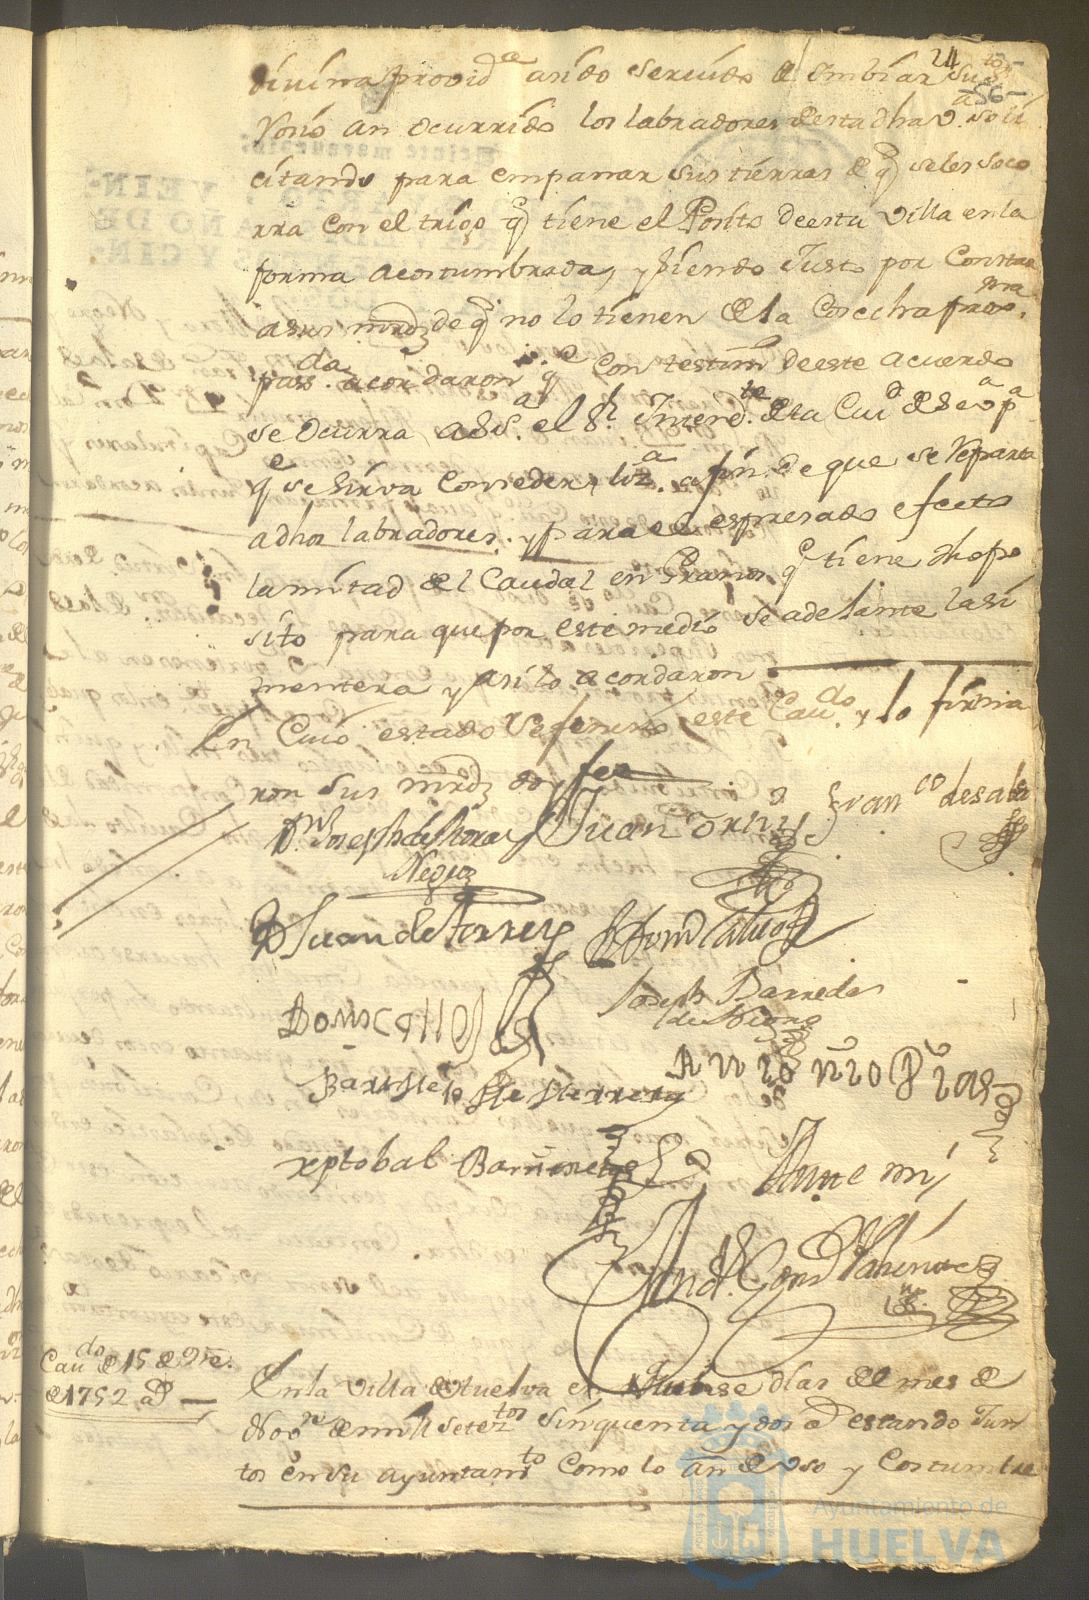 24
56
divina provid.ª asido servido de Imbiar su
Rosio an ocurrido los labradores de esta dha v.ª soli
citando para empanar sus tierras de q̃ se les soco
rra con el trigo q̃ tiene el Posito de esta villa en la
forma acostumbrada, y siendo Justo por Constar
a sus mrdz de q̃ no lo tienen de la Cosecha prox.ma
pass.da acordaron q.e con testim.º de este acuerdo
se ocurra a S S.ª el S.r Intend.te de la Ciu.d de Sev.ª p.ª
q.e se sirva Conseder liz.ª a fin de que se Reparta
a dhos labradores. y para el espresado efecto
la mitad del Caudal en Granos q.e tiene dho po
sito para que por este medio se adelante la si
mentera y asi lo acordaron
En Cuio estado se fenesio este Cau.do y lo firma
ron sus mrdz doy fee
D.n Joseph de
Negro
Juan
Fran.co de sala
D Juan de Torres
Joseph Barreda
Bartolome de Herrera
Antonio
xptobal
Ante mi
Cau.do de 15 de Nre.
de 1752 a.s
En la villa de Huelva en quinse dias del mes de
Nov.re de mill setez.tos sinquenta y dos a.s estando Jun
tos en su ayuntam.to Como lo an de Uso y Costumbre
Ayuntamiento de
HUELVA